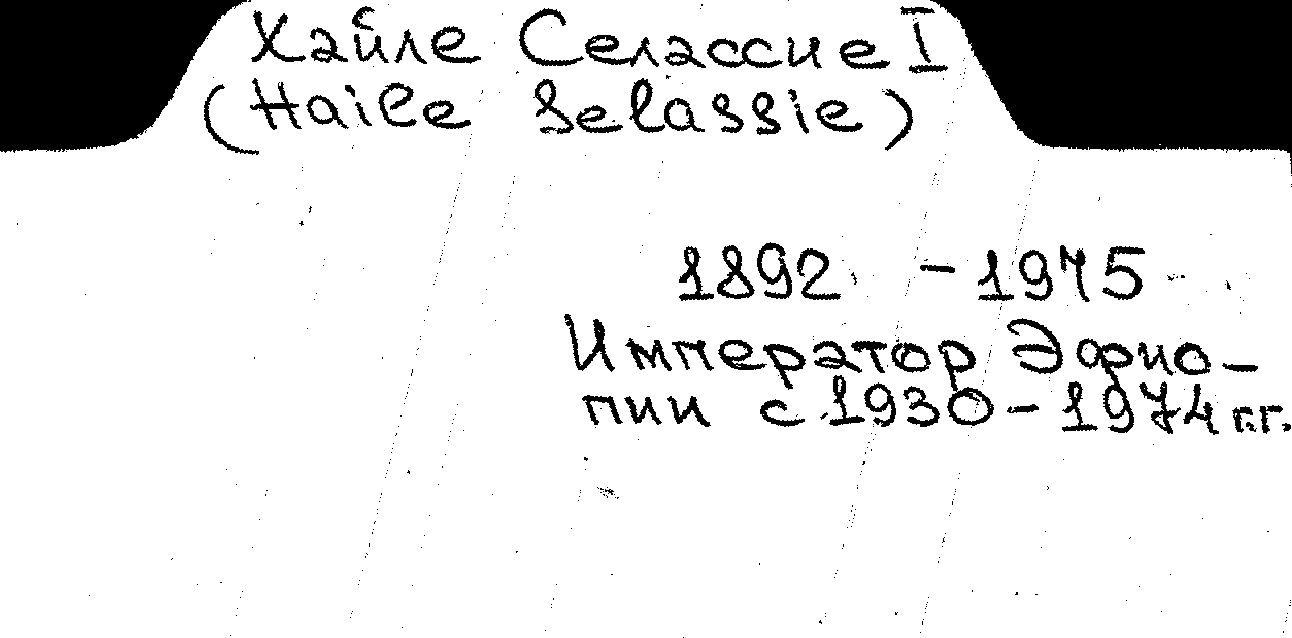 Хайле Селассие I
(Haile Selassie)
1892 - 1975
Император Эфио-
пии с 1930 - 1974 г.г.